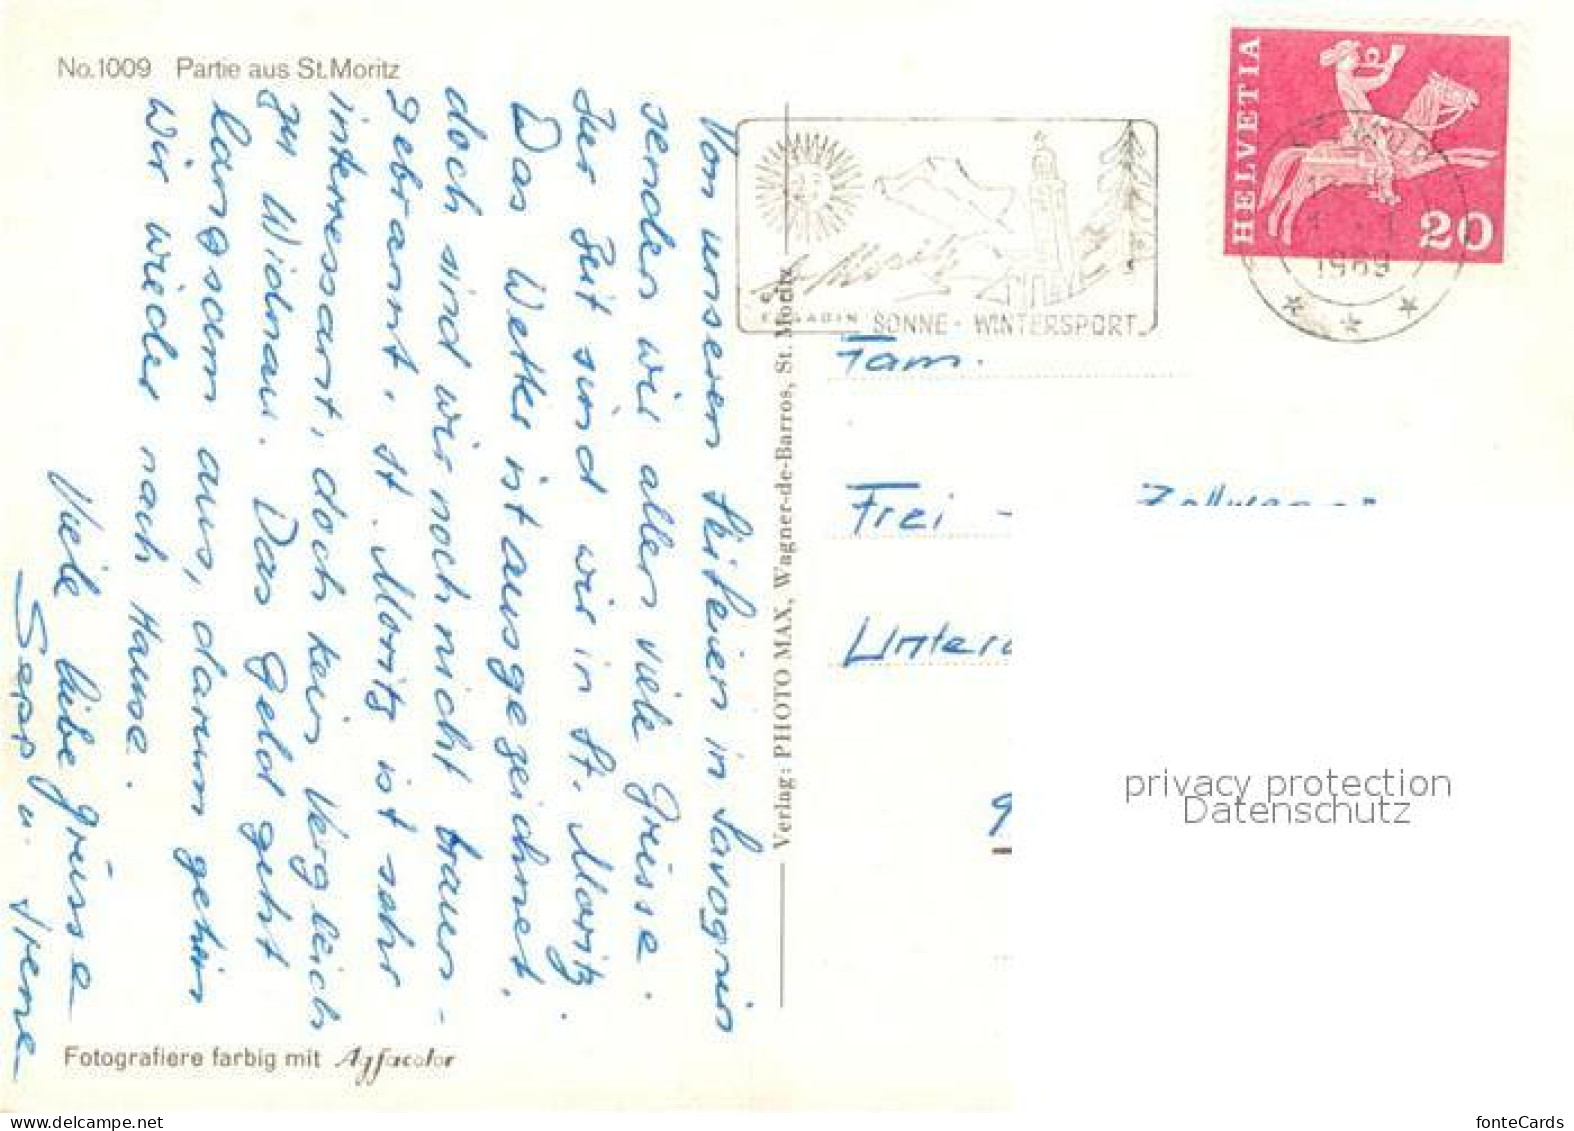 No.1009 Partie aus St.Moritz
Von unseren Skiferien in Savognin
senden wir allen viele Grüsse.
Zur Zeit sind wir in St. Moritz.
Das Wetter ist ausgezeichnet,
doch sind wir noch nicht braun-
gebrannt. St. Moritz ist sehr
interressant, doch kein Vergleich
zu Widnau. Das Geld geht
langsam aus, darum gehen
wir wieder nach Hause.
Viele liebe Grüsse
Sepp u. Irene
Fotografiere farbig mit Agfacolor
Verlag: PHOTO MAX, Wagner-de-Barros, St. Moritz
St. Moritz
ENGADIN SONNE - WINTERSPORT
HELVETIA
20
1969
Fam.
Frei -
privacy protection
Datenschutz
www.delcampe.net
fonteCards